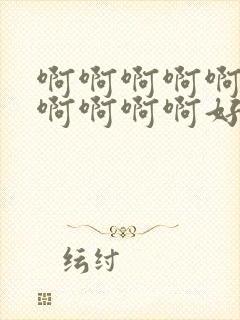 啊啊啊啊啊
啊啊啊啊好
纭纣